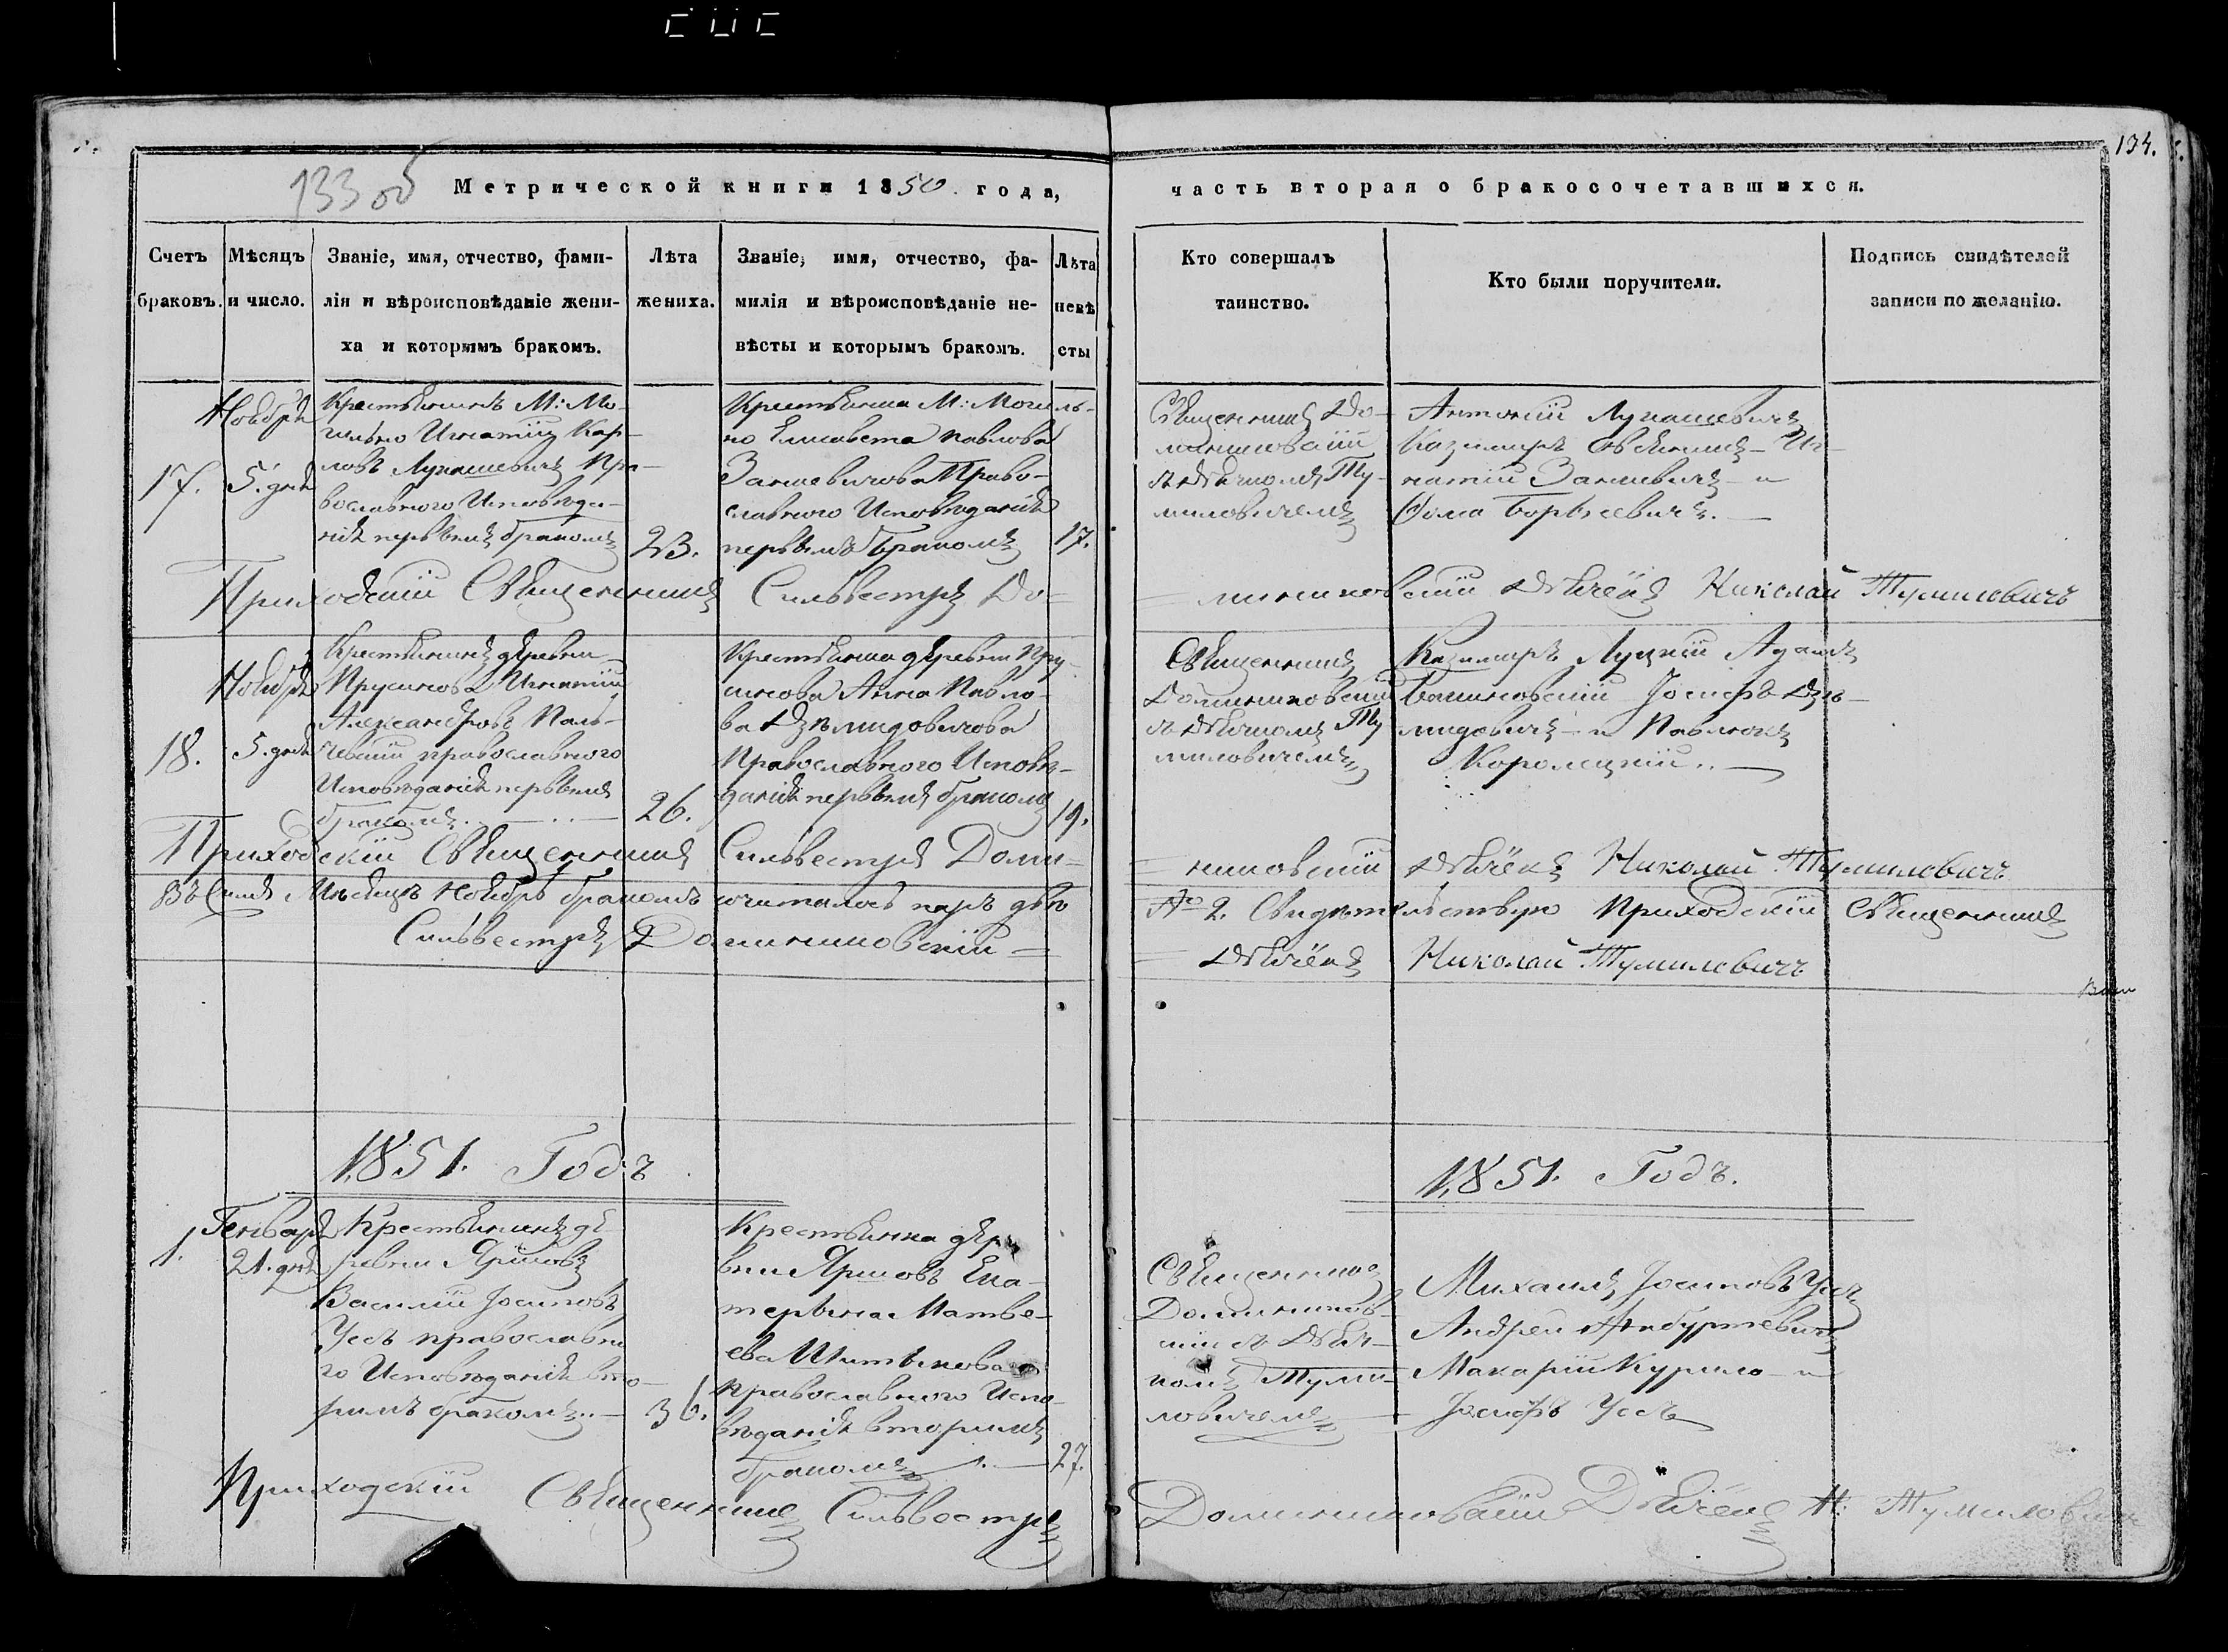 133 об
Метрической книги 1850. года,
часть вторая о бракосочетавшихся.
134.
Счетъ браковъ.
Мѣсяцъ и число.
Званіе, имя, отчество, фами-
лія и вѣроисповѣданіе жени-
ха и которымъ бракомъ.
Лѣта жениха.
Званіе, имя, отчество, фа-
милія и вѣроисповѣданіе не-
вѣсты и которымъ бракомъ.
Лѣта невѣ
сты
Кто совершалъ
таинство.
Кто были поручители.
Подпись свидѣтелей
записи по желанію.
17.
Ноября
5. дня
Крестьянинъ М: Мо-
гильно Игнатій Кар-
ловъ Лукашевичъ Пра-
вославного Исповѣда-
нія первымъ бракомъ
23.
Крестьянка М: Могиль-
но Елисавета Павлова
Заневичова Право-
славного Исповѣданія
первымъ бракомъ
17.
Священникъ До-
миниковскій
съ Дьячкомъ Ту-
миловичемъ
Антоній Лукашевичъ
Казимиръ Овсяникъ - Иг-
натій Заневичъ - и
Фома Борысевичъ. -
Приходскій Священникъ Сильвестръ До-
миниковскій Дьячекъ Николай Тумиловичъ
18.
Ноября
5. дня
Крестьянинъ деревни
Прусинова Игнатій
Александровъ Паль-
чевскій православного
Исповѣданія первымъ
бракомъ.
26.
Крестьянка деревни Пру-
синова Анна Павло-
ва Дзѣмидовичова
Православного Исповѣ-
данія первымъ бракомъ
19.
Священникъ
Доминиковскій
съ Дьячкомъ Ту
миловичемъ
Казимиръ Луцкій Адамъ
Іосифъ Дзѣ-
мидовичъ - и Павлюкъ
Королецкій..
Приходскій Священникъ Сильвестръ Доми-
никовскій Дьячекъ Николай Тумиловичъ
Въ семъ Мѣсяцѣ Ноябрѣ бракомъ сочиталось паръ двѣ
№ 2. Свидѣтельствую Приходскій Священникъ
Сильвестръ Доминиковскій =
= Дьячекъ Николай Тумиловичъ
1851. Годъ
1851. Годъ.
1.
Генваря
21. дня
Крестьянинъ де
ревни Яршовъ
Василій Іосифовъ
Усъ православно
го Исповѣданія вто-
римъ бракомъ..
36.
Крестьянка дере
вни Яршовъ Ека-
терына Матве-
ева
православного Испо-
вѣданія вторимъ
бракомъ
27.
Священникъ
Доминиковс
кій съ Дьяч-
комъ Туми-
ловичемъ
Михаилъ Іосифовъ Усъ
Андрей
Макарій Курило - и
Іосифъ Усъ
Приходскій Священникъ Сильвестръ
Доминиковскій Дьячекъ Н: Тумиловичъ